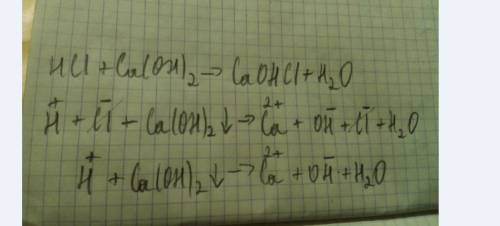 HCl + Ca(OH)₂ → CaOHCl + H₂O
H⁺ + Cl⁻ + Ca(OH)₂↓ → Ca²⁺ + OH⁻ + Cl⁻ + H₂O
H⁺ + Ca(OH)₂↓ → Ca²⁺ + OH⁻ + H₂O